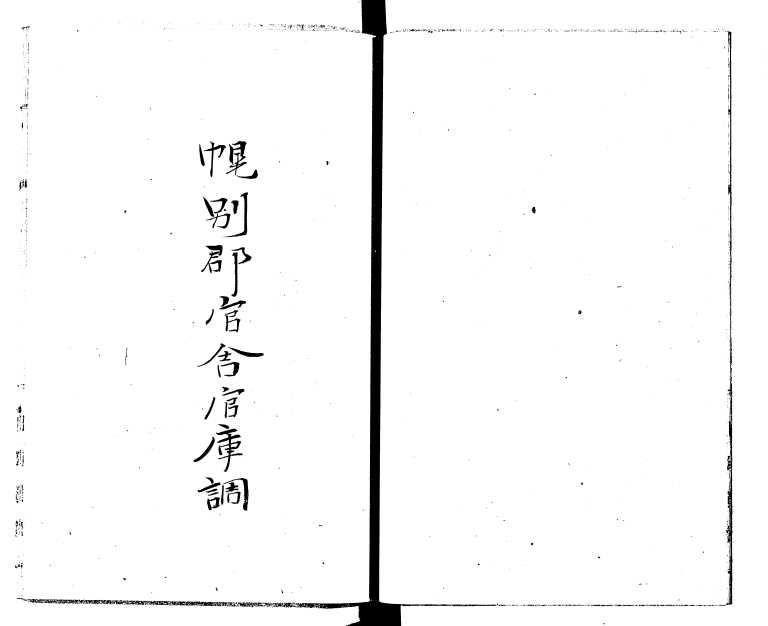 幌別郡官舎官庫調